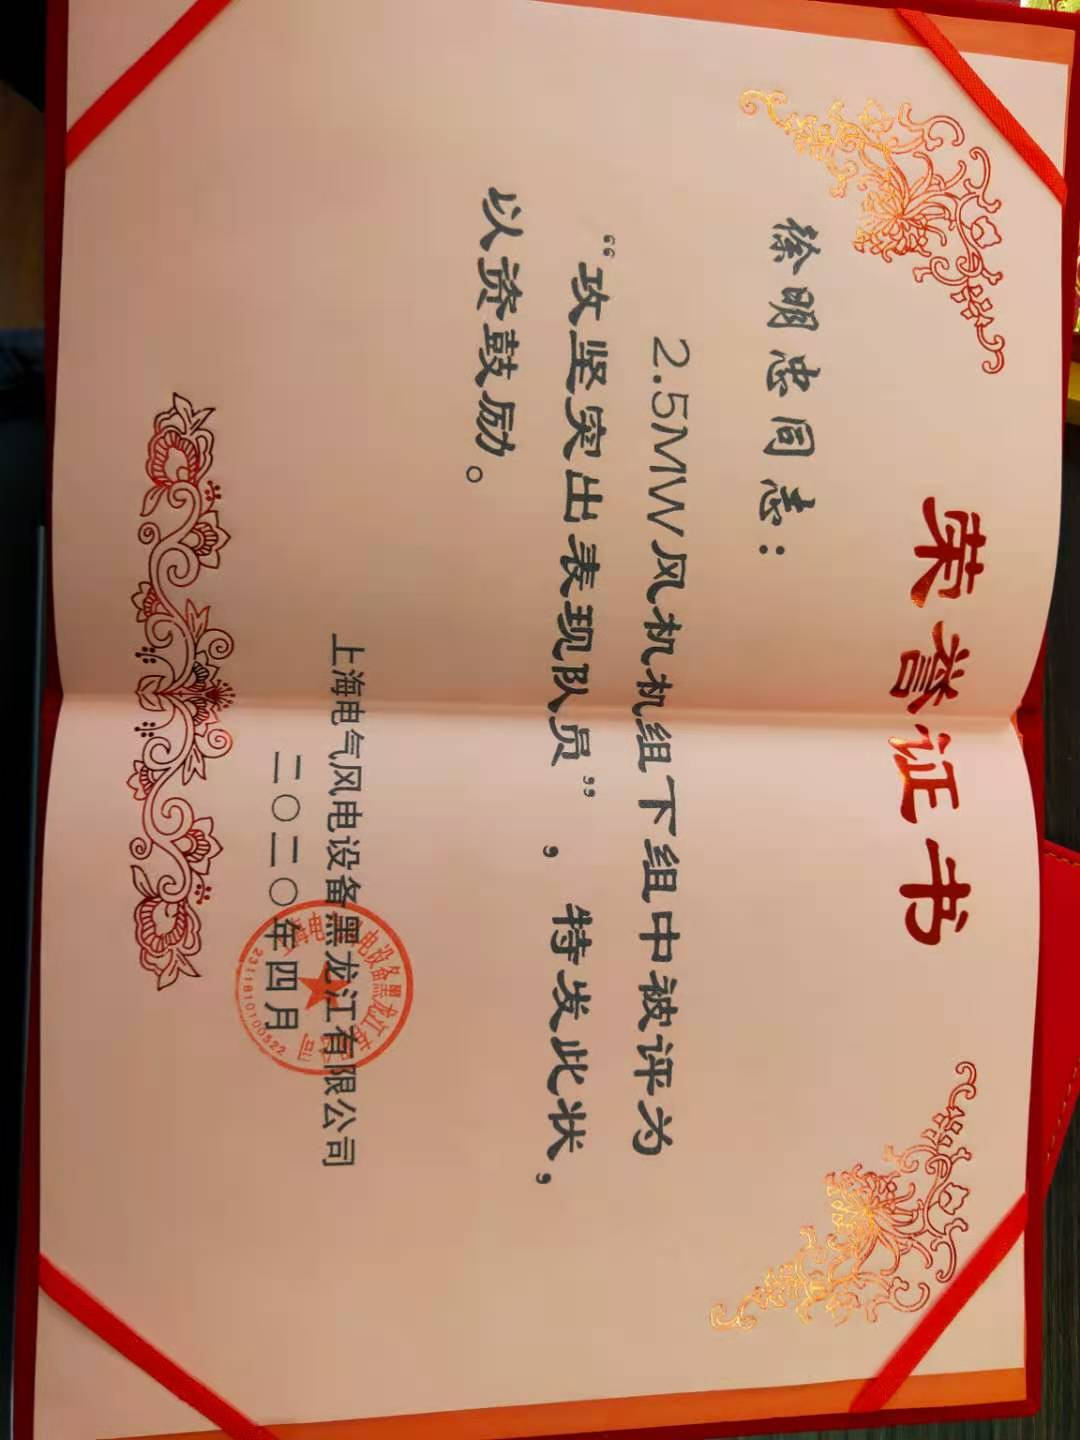 荣誉证书
徐明忠同志：
2.5MW风机机组下组中被评为
“攻坚突出表现队员”，特发此状，
以资鼓励。
上海电气风电设备黑龙江有限公司
二〇二〇年四月
2311810100522